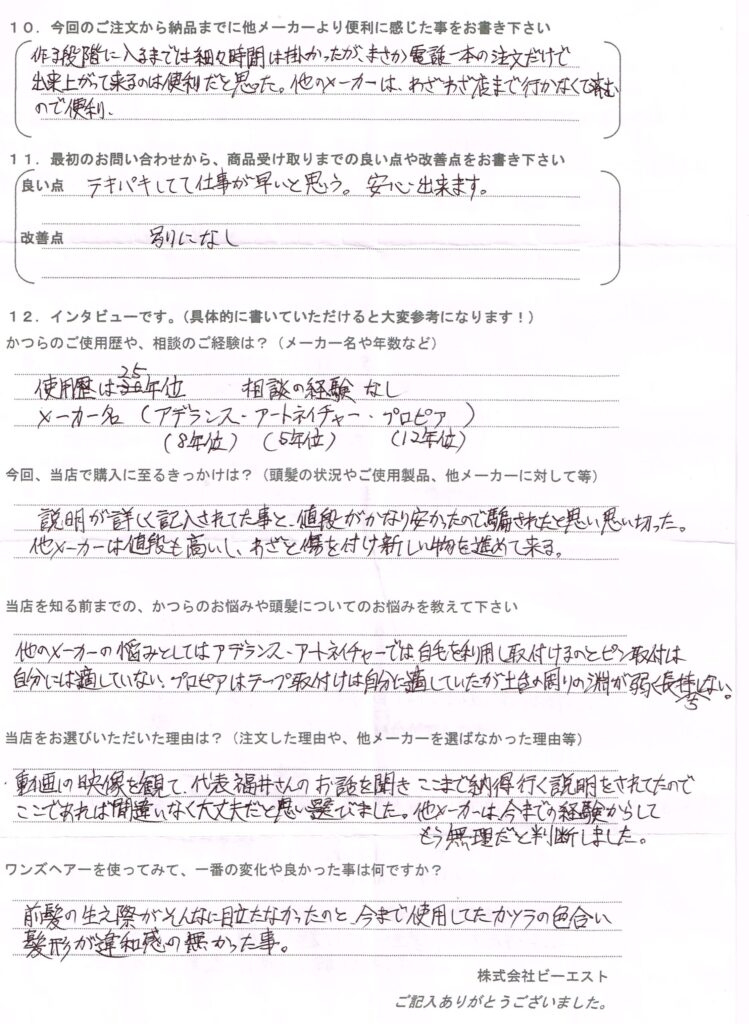 １０．今回のご注文から納品までに他メーカーより便利に感じた事をお書き下さい
作る段階に入るまでは細々時間は掛かったが、まさか電話一本の注文だけで
出来上がって来るのは便利だと思った。他のメーカーは、わざわざ店まで行かなくて済む
ので便利.
１１．最初のお問い合わせから、商品受け取りまでの良い点や改善点をお書き下さい
良い点 テキパキしてて仕事が早いと思う。安心出来ます。
改善点 別になし
１２．インタビューです。（具体的に書いていただけると大変参考になります！）
かつらのご使用歴や、相談のご経験は？（メーカー名や年数など）
25
使用歴は年位 相談の経験 なし
メーカー名（アデランス・アートネイチャー・プロピア）
（8年位）（5年位）（12年位）
今回、当店で購入に至るきっかけは？（頭髪の状況やご使用製品、他メーカーに対して等）
説明が詳しく記入されてた事と、値段がかなり安かったので騙されたと思い思い切った。
他メーカーは値段も高いし、わざと傷を付け新しい物を進めて来る。
当店を知る前までの、かつらのお悩みや頭髪についてのお悩みを教えて下さい
他のメーカーの悩みとしてはアデランス・アートネイチャーでは自毛を利用し取付けるのとピン取付は
自分には適していない、プロピアはテープ取付けは自分に適していたが土台の周りの淵が弱く長持しない。
ち
当店をお選びいただいた理由は？（注文した理由や、他メーカーを選ばなかった理由等）
動画の映像を観て、代表福井さんのお話を聞きここまで納得行く説明をされてたので
ここであれば間違いなく大丈夫だと思い選びました。他メーカーは今までの経験からして
もう無理だと判断しました。
ワンズヘアーを使ってみて、一番の変化や良かった事は何ですか？
前髪の生え際がそんなに目立たなかったのと、今まで使用してたカツラの色合い
髪形が違和感の無かった事。
株式会社ビーエスト
ご記入ありがとうございました。